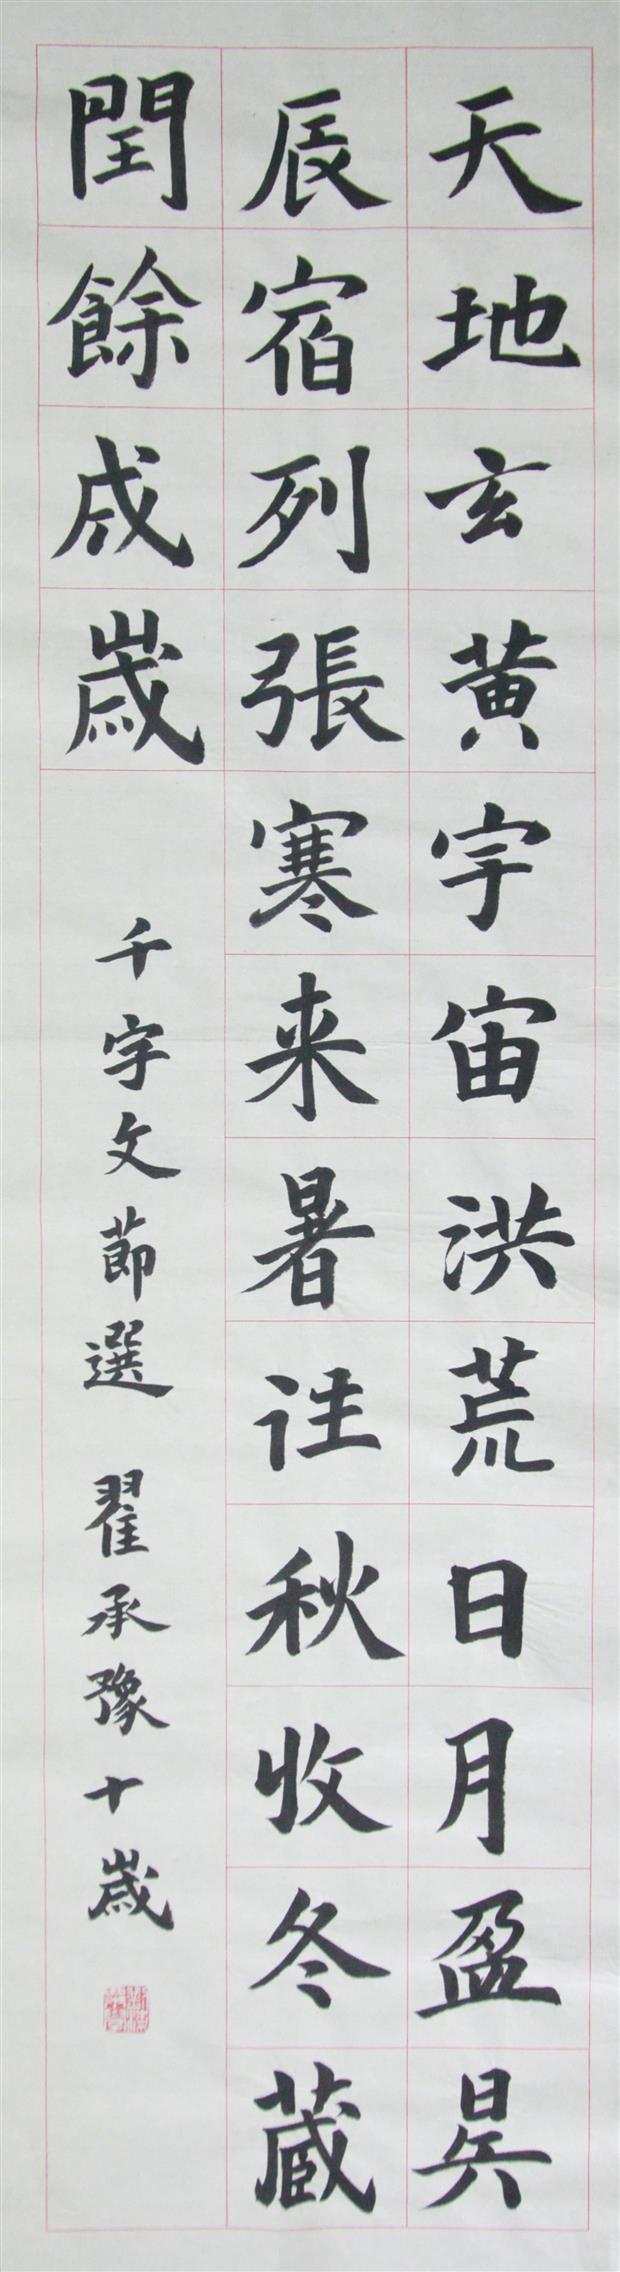 天地玄黄宇宙洪荒日月盈昃
辰宿列張寒来暑往秋收冬藏
閏餘成歲
千字文節選 翟承豫十歲